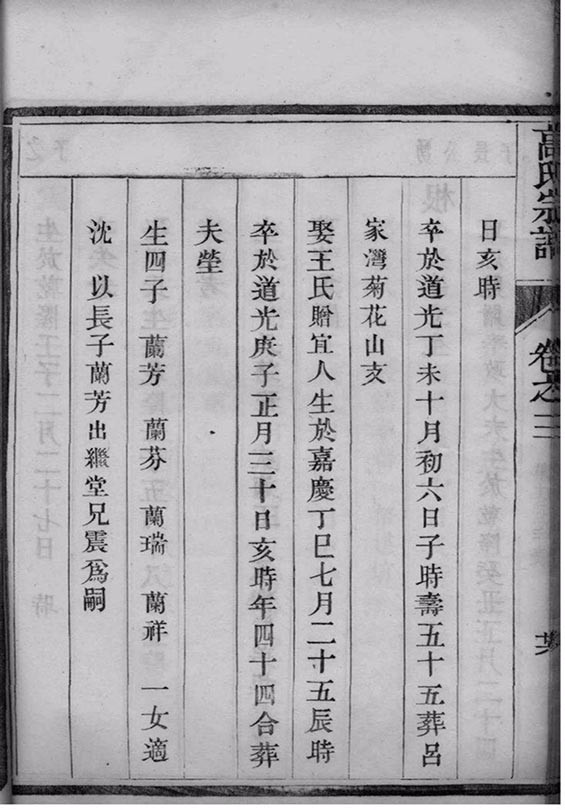 萬氏宗譜
卷之三
日亥時
卒於道光丁未十月初六日子時壽五十五葬呂
家灣菊花山支
娶王氏贈宜人生於嘉慶丁巳七月二十五辰時
卒於道光庚子正月三十日亥時年四十四合葬
夫塋
生四子 蘭芳 蘭芬 蘭瑞 蘭祥 一女適
沈 以長子蘭芳出繼堂兄震爲嗣